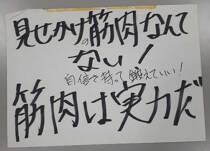 見せかけの筋肉なんて
ない!
自信を持って鍛えていい!
筋肉は実力だ